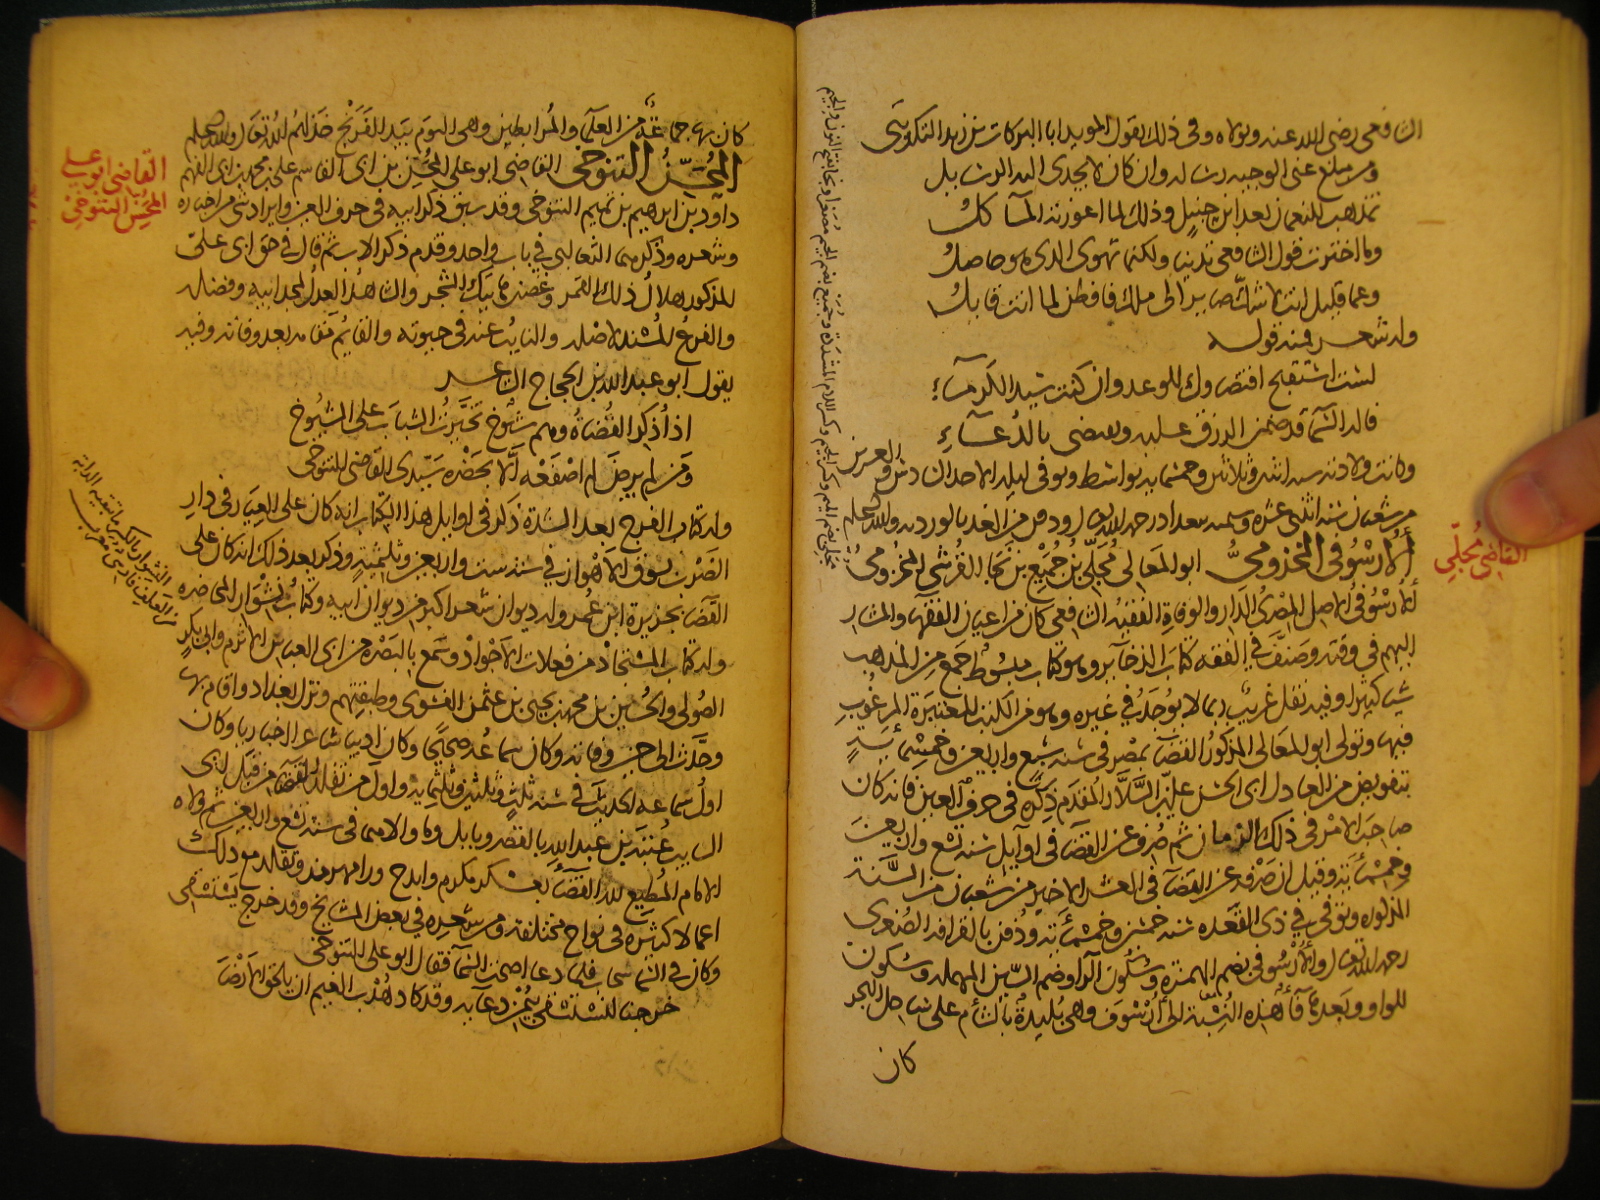 الشافعي رضي الله عنه وتولاه وفي ذلك يقول المؤيد ابا البركات بن زيد التكريتي
ومن مبلغ عني الوجيه رسالة وان كان لا يجدي اليه الرسائل
تمذهبت للنعمان بعد ابن حنبل وذلك لما اعوزتك المآكل
وما اخترت قول الشافعي تدينا ولكنما تهوى الذي هو حاصل
وعما قليل انت لا شك صاير الى ملك فافطن لما انت قايل
وله شعر فمنه قوله
لست استقبح اقتضاءك للوعد وان كنت سيد الكرماء
فاله السما قد ضمن الرزق عليه ويقضى بالدعاء
وكانت ولادته سنة اثنتين وثلاثين وخمسماية بواسط وتوفي ليلة الاحد السادس والعشرين
من شعبان سنة اثنتي عشرة وستماية ببغداد رحمه الله تعالى ودفن من الغد بالوردية والله اعلم
الأرسوفي المخزومي ابو المعالي مجلي بن جميع بن نجا القرشي المخزومي
الأرسوفي الاصل المصري الدار والوفاة الفقيه الشافعي كان من اعيان الفقهاء والمشار
اليهم في وقته وصنف في الفقه كتاب الذخاير وهو كتاب مبسوط جمع من المذهب
شيئا كثيرا وفيه نقل غريب ربما لا يوجد في غيره وهو من الكتب المعتبرة المرغوب
فيها وتولى ابو المعالي المذكور القضا بمصر في سنة سبع واربعين وخمسماية
بتفويض من العادل ابي الحسن علي بن السلار المقدم ذكره في حرف العين فانه كان
صاحب الامر في ذلك الزمان ثم صرف عن القضا في اوايل سنة تسع واربعين
وخمسماية وقيل ان صرفه عن القضا في العشر الاخير من شعبان من السنة
المذكورة وتوفي في ذي القعدة سنة خمسين وخمسماية ودفن بالقرافة الصغرى
رحمه الله تعالى والأرسوفي بضم الهمزة وسكون الراء وضم السين المهملة وسكون
الواو وبعدها فآء هذه النسبة الى أرسوف وهي بليدة بالشأم على ساحل البحر
كان
القاضي مجلي
مجلي بضم الميم وفتح الجيم وكسر اللام المشددة وجميع بضم الجيم مصغرا ونجا بفتح النون والجيم
كان بها جماعة من العلماء والمرابطين وهي اليوم بيد الفرنج خذلهم الله تعالى والله اعلم
المحسّن التنوخي القاضي ابو علي المحسن بن ابي القاسم علي بن محمد بن ابي الفهم
داود بن ابرهيم بن تميم التنوخي وقد سبق ذكر ابيه في حرف العين وايراد شي من اخباره
وشعره وذكرهما الثعالبي في باب واحد وقدم ذكر الاب ثم قال في حق ابي علي
المذكور هلال ذلك القمر وغصن هاتيك الشجر والشاهد العدل لمجد ابيه وفضله
والفرع المشيد لاصله والنايب عنه في حيوته والقايم مقامه بعد وفاته وفيه
يقول ابو عبد الله بن الحجاج الشاعر
اذا ذكر القضاة وهم شيوخ تخيرت الشباب على الشيوخ
ومن لم يرض لم اصفعه الا بحضرة سيدي القاضي التنوخي
وله كتاب الفرج بعد الشدة ذكر في اوايل هذا الكتاب انه كان على العيار في دار
الضرب بسوق الاهواز في سنة ست واربعين وثلثماية وذكر بعد ذلك انه كان على
القضا بجزيرة ابن عمر وله ديوان شعر اكبر من ديوان ابيه وكتاب نشوار المحاضرة
وله كتاب المستجاد من فعلات الاجواد وسمع بالبصرة من ابي العباس الاثرم وابي بكر
الصولي والحسين بن محمد بن يحيى بن عثمن الفسوي وطبقتهم ونزل بغداد واقام بها
وحدث الى حين وفاته وكان سماعه صحيحا وكان اديبا شاعرا اخباريا وكان
اول سماعه الحديث في سنة ثلث وثلثين وثلثماية واول من تقلد القضا من قبل ابي
السايب عتبة بن عبد الله بالقصر وبابل وما والاهما في سنة تسع واربعين ثم ولاه
الامام المطيع لله القضا بعسكر مكرم وايذج ورامهرمز وتقلد بعد ذلك
اعمالا كثيرة في نواح مختلفة ومن شعره في بعض المشايخ وقد خرج يستسقي
وكان في السما سحاب فلما دعا اصحت السما فقال ابو علي التنوخي
خرجنا لنستسقي بيمن دعآيه وقد كاد هدب الغيم ان يلحف الارضا
القاضي ابو علي
المحسن التنوخي